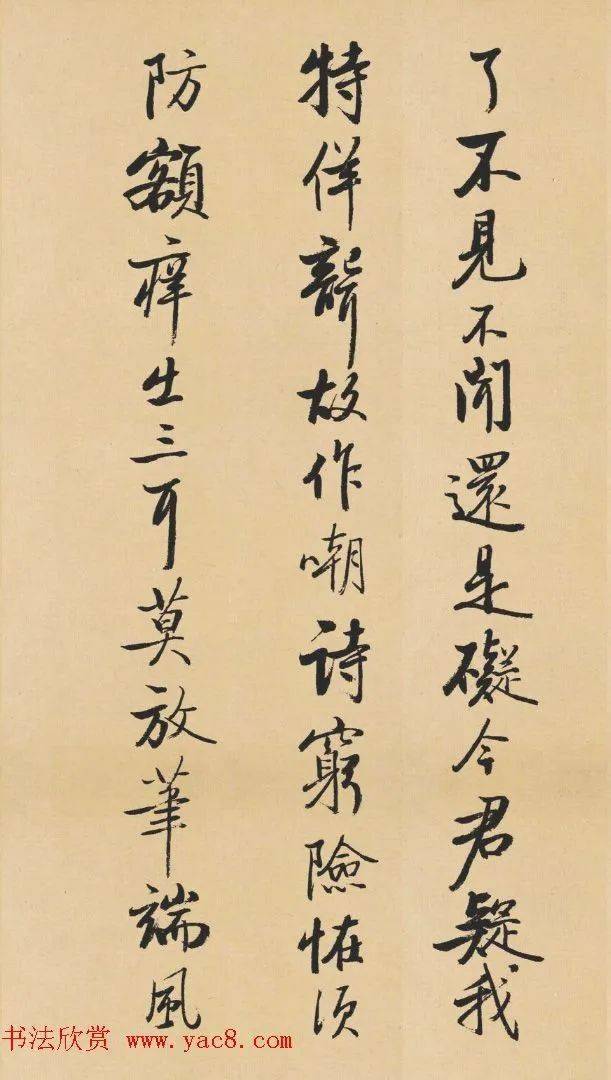 了不見不聞還是礙今君疑我
特佯聾故作嘲詩窮險怪須
防額癢生三耳莫放筆端風
书法欣赏 www.yac8.com